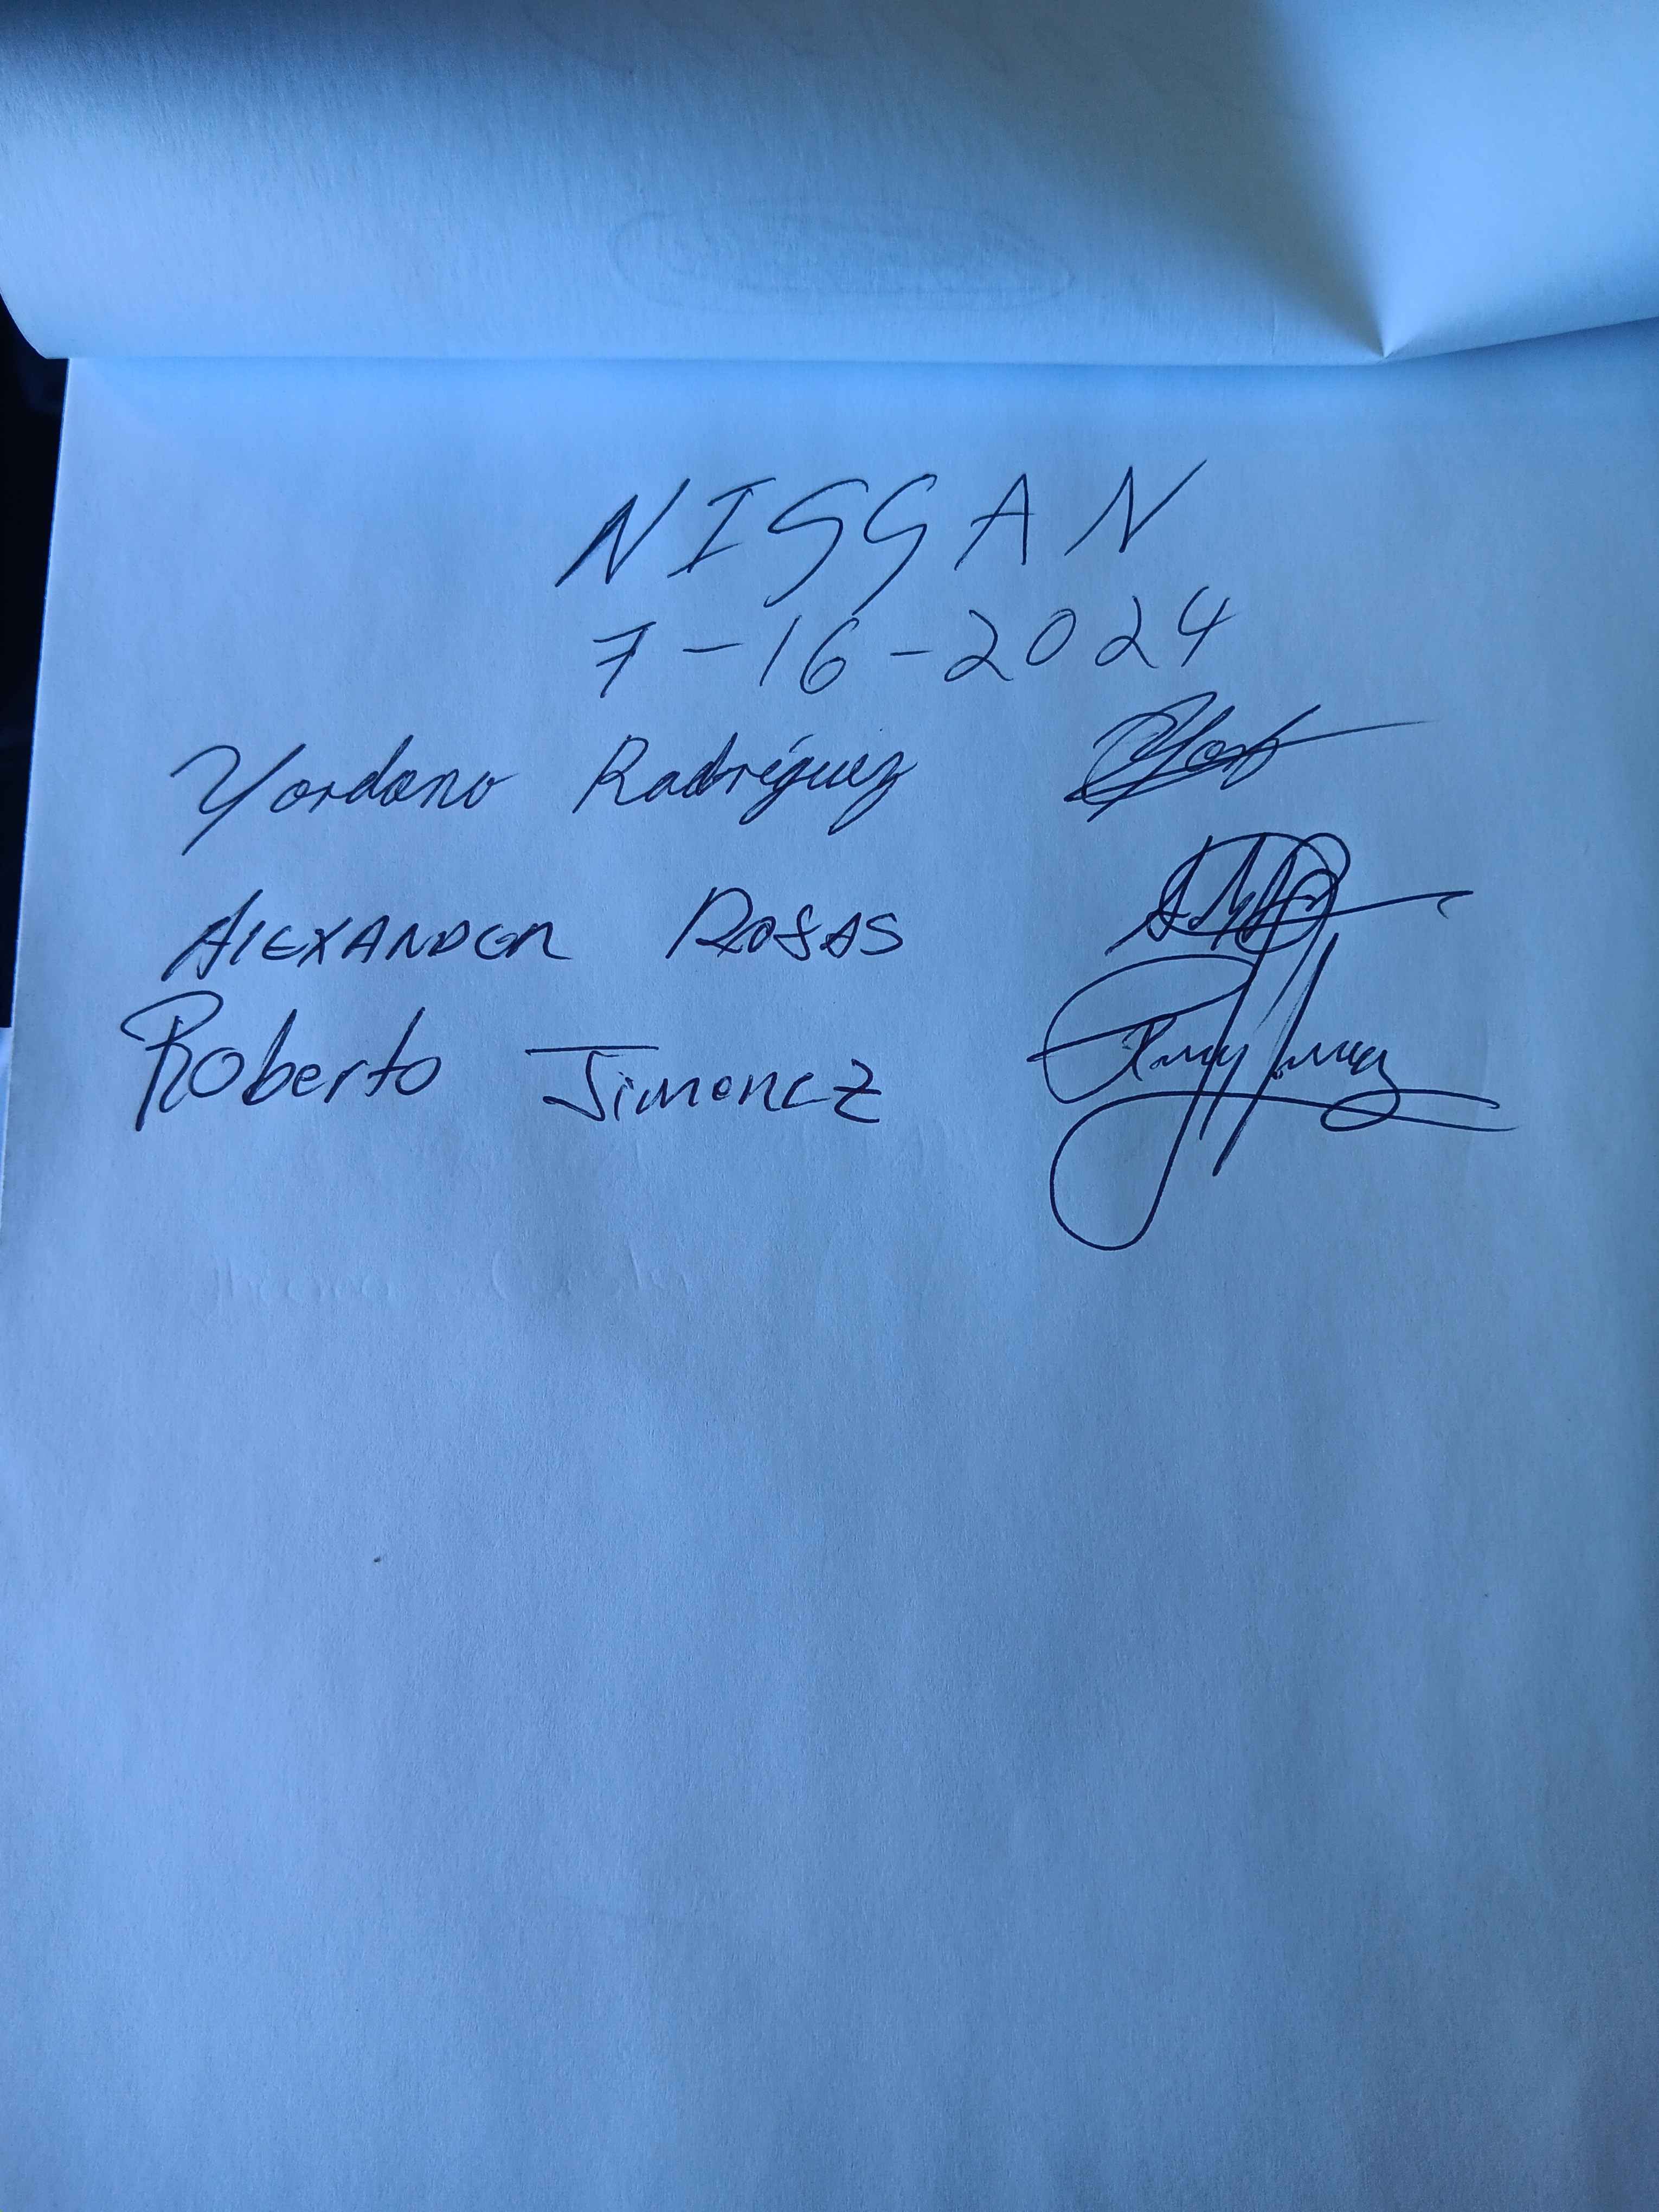 NISSAN
7-16-2024
Yordano Rodríguez
ALEXANDER ROSAS
Roberto Jimenez